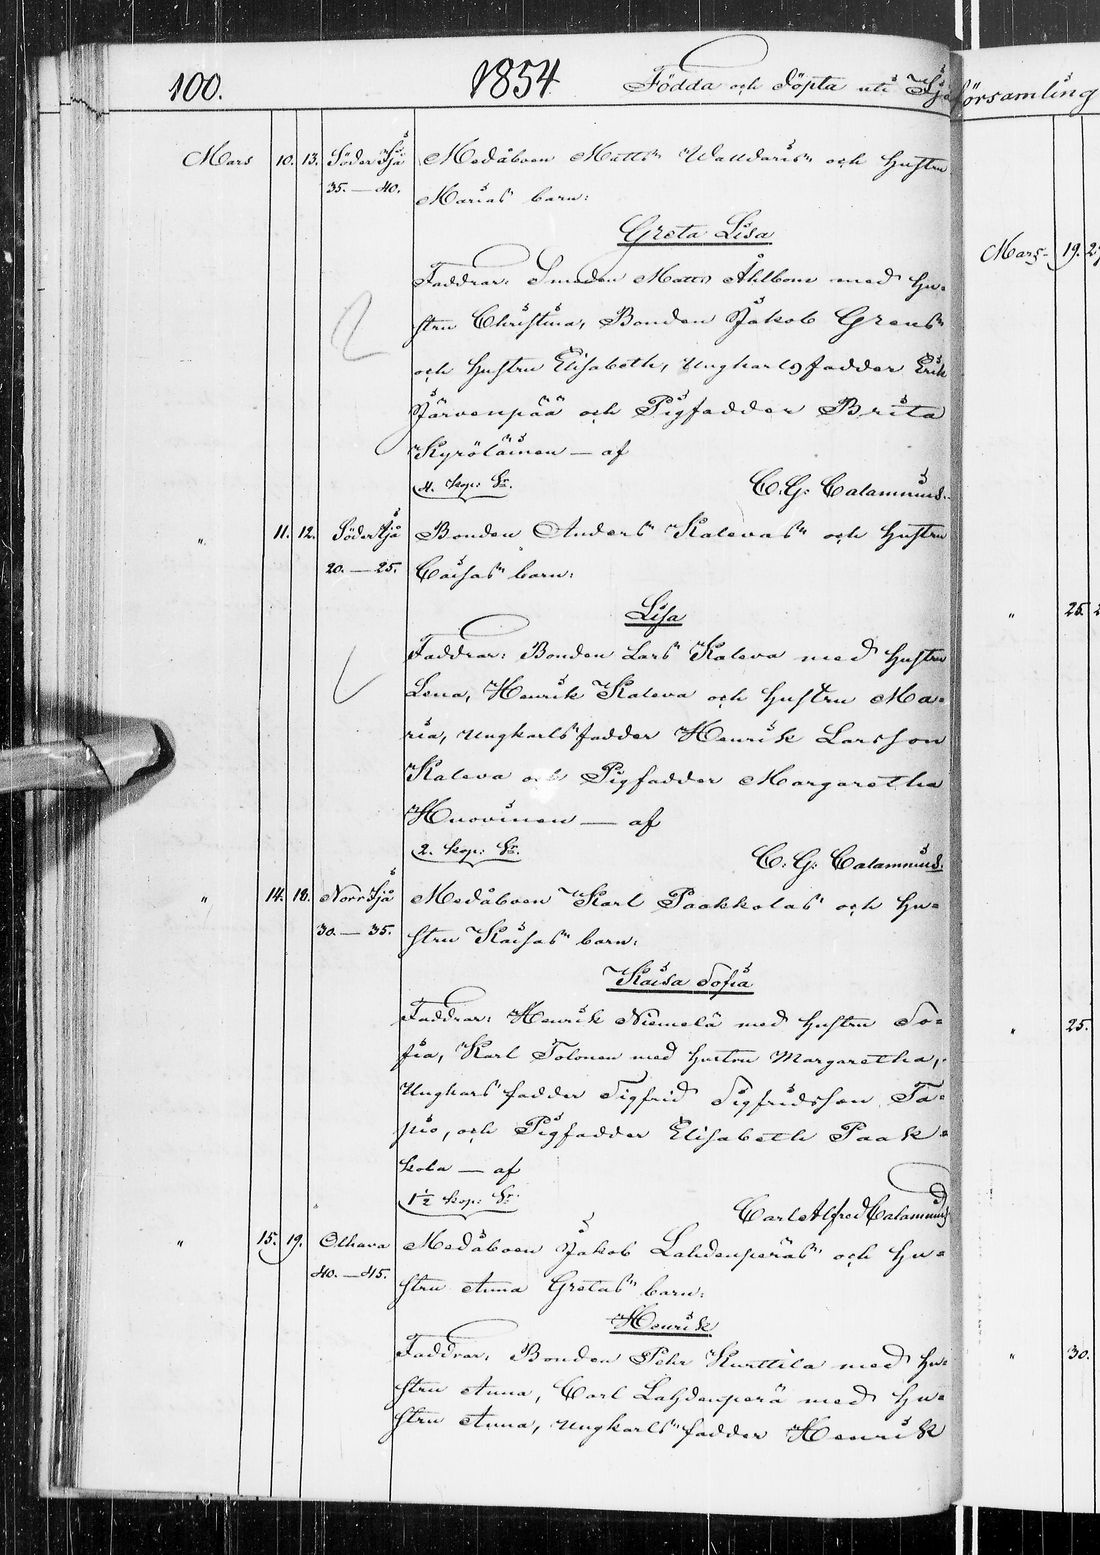 100. 1854 Födda och Döpta uti Ijo församling
Mars 10. 13. Söder Ijå Medåboen Matts" Walldaris" och hustru
35. — 40. Marias" barn:
Greta Lisa
Faddrar: Smeden Matts Åhlbom med hu=
stru Christina, Bonden Jakob Grens"
och hustru Elisabeth, Ungkarlsfadder Erik
Järvenpää och Pigfadder Brita
Kyröläinen — af
4. kop: Sr. C. G. Calamnius.
" 11. 12. Söder Ijå Bonden Anders" Kalevas" och hustru
20. — 25. Caisas" barn:
Lisa
Faddrar: Bonden Lars Kaleva med hustru
Lena, Henrik Kaleva och hustru Ma=
ria, Ungkarls"fadder Henrik Larsson
Kaleva och Pigfadder Margaretha
Huovinen — af
2. kop: Sr. C. G. Calamnius.
" 14. 18. Norr Ijå Medåboen Karl Paakkolas" och hu=
30. — 35. stru Kaisas" barn:
Kaisa Sofia
Faddrar: Henrik Niemelä med hustru So=
fia, Karl Tolonen med hustru Margaretha,
Ungkars"fadder Sigfrid Sigfridsson Ta=
pio, och Pigfadder Elisabeth Paak=
kola — af
1½ kop: Sr. Carl Alfred Calamnius
" 15. 19. Olhava Medåboen Jakob Lahdenperäs" och hu=
40. — 45. stru Anna Gretas" barn:
Henrik
Faddrar: Bonden Pehr Kurttila med hu=
stru Anna, Carl Lahdenperä med hu=
stru Anna, Ungkarls"fadder Henrik
Mars 19. 27
" 25. 2
" 25.
" 30.